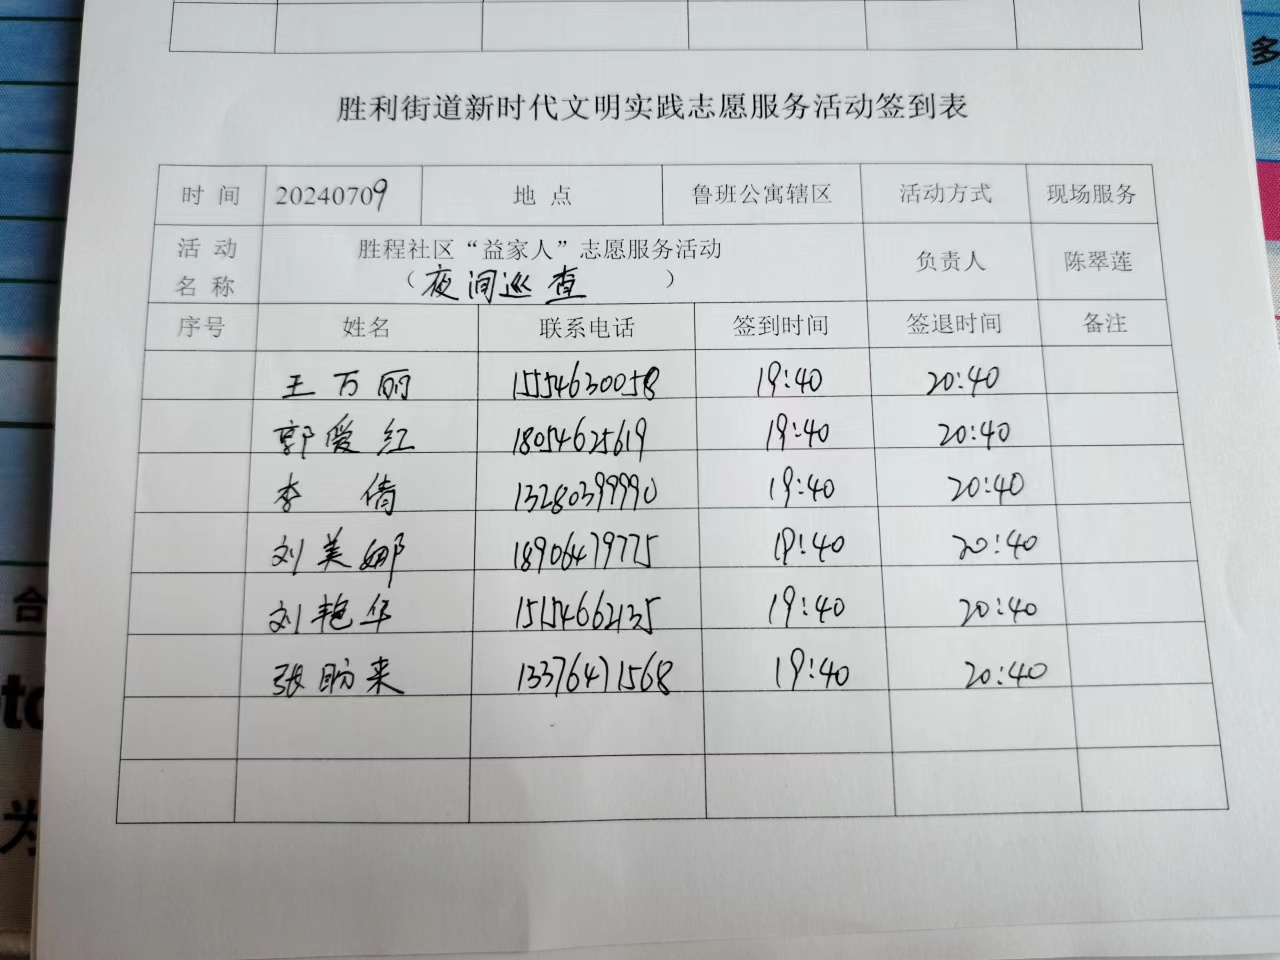 胜利街道新时代文明实践志愿服务活动签到表
时 间 20240709 地 点 鲁班公寓辖区 活动方式 现场服务
活 动 名 称 胜程社区“益家人”志愿服务活动 负责人 陈翠莲
（夜间巡查）
序号 姓名 联系电话 签到时间 签退时间 备注
王万丽 15554630058 19:40 20:40
郭爱红 18054625619 19:40 20:40
李倩 13280399990 19:40 20:40
刘美娜 18906479775 19:40 20:40
刘艳华 15154662135 19:40 20:40
张盼来 13376471568 19:40 20:40
多
合
为